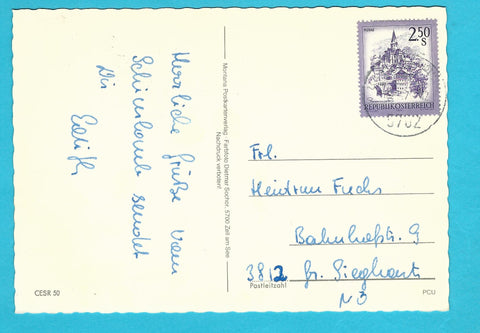 Herzliche Grüße vom
Schmittenh sendet
Dir
Edith
Montana Postkartenverlag · Farbfoto Dietmar Sochor, 5700 Zell am See
Nachdruck verboten!
CESR 50
2.50
S
REPUBLIK ÖSTERREICH
5702
Frl.
Heidrun Fuchs
Bahnhofstr. 9
3812 Gr. Sieghart
NÖ
Postleitzahl
PCU